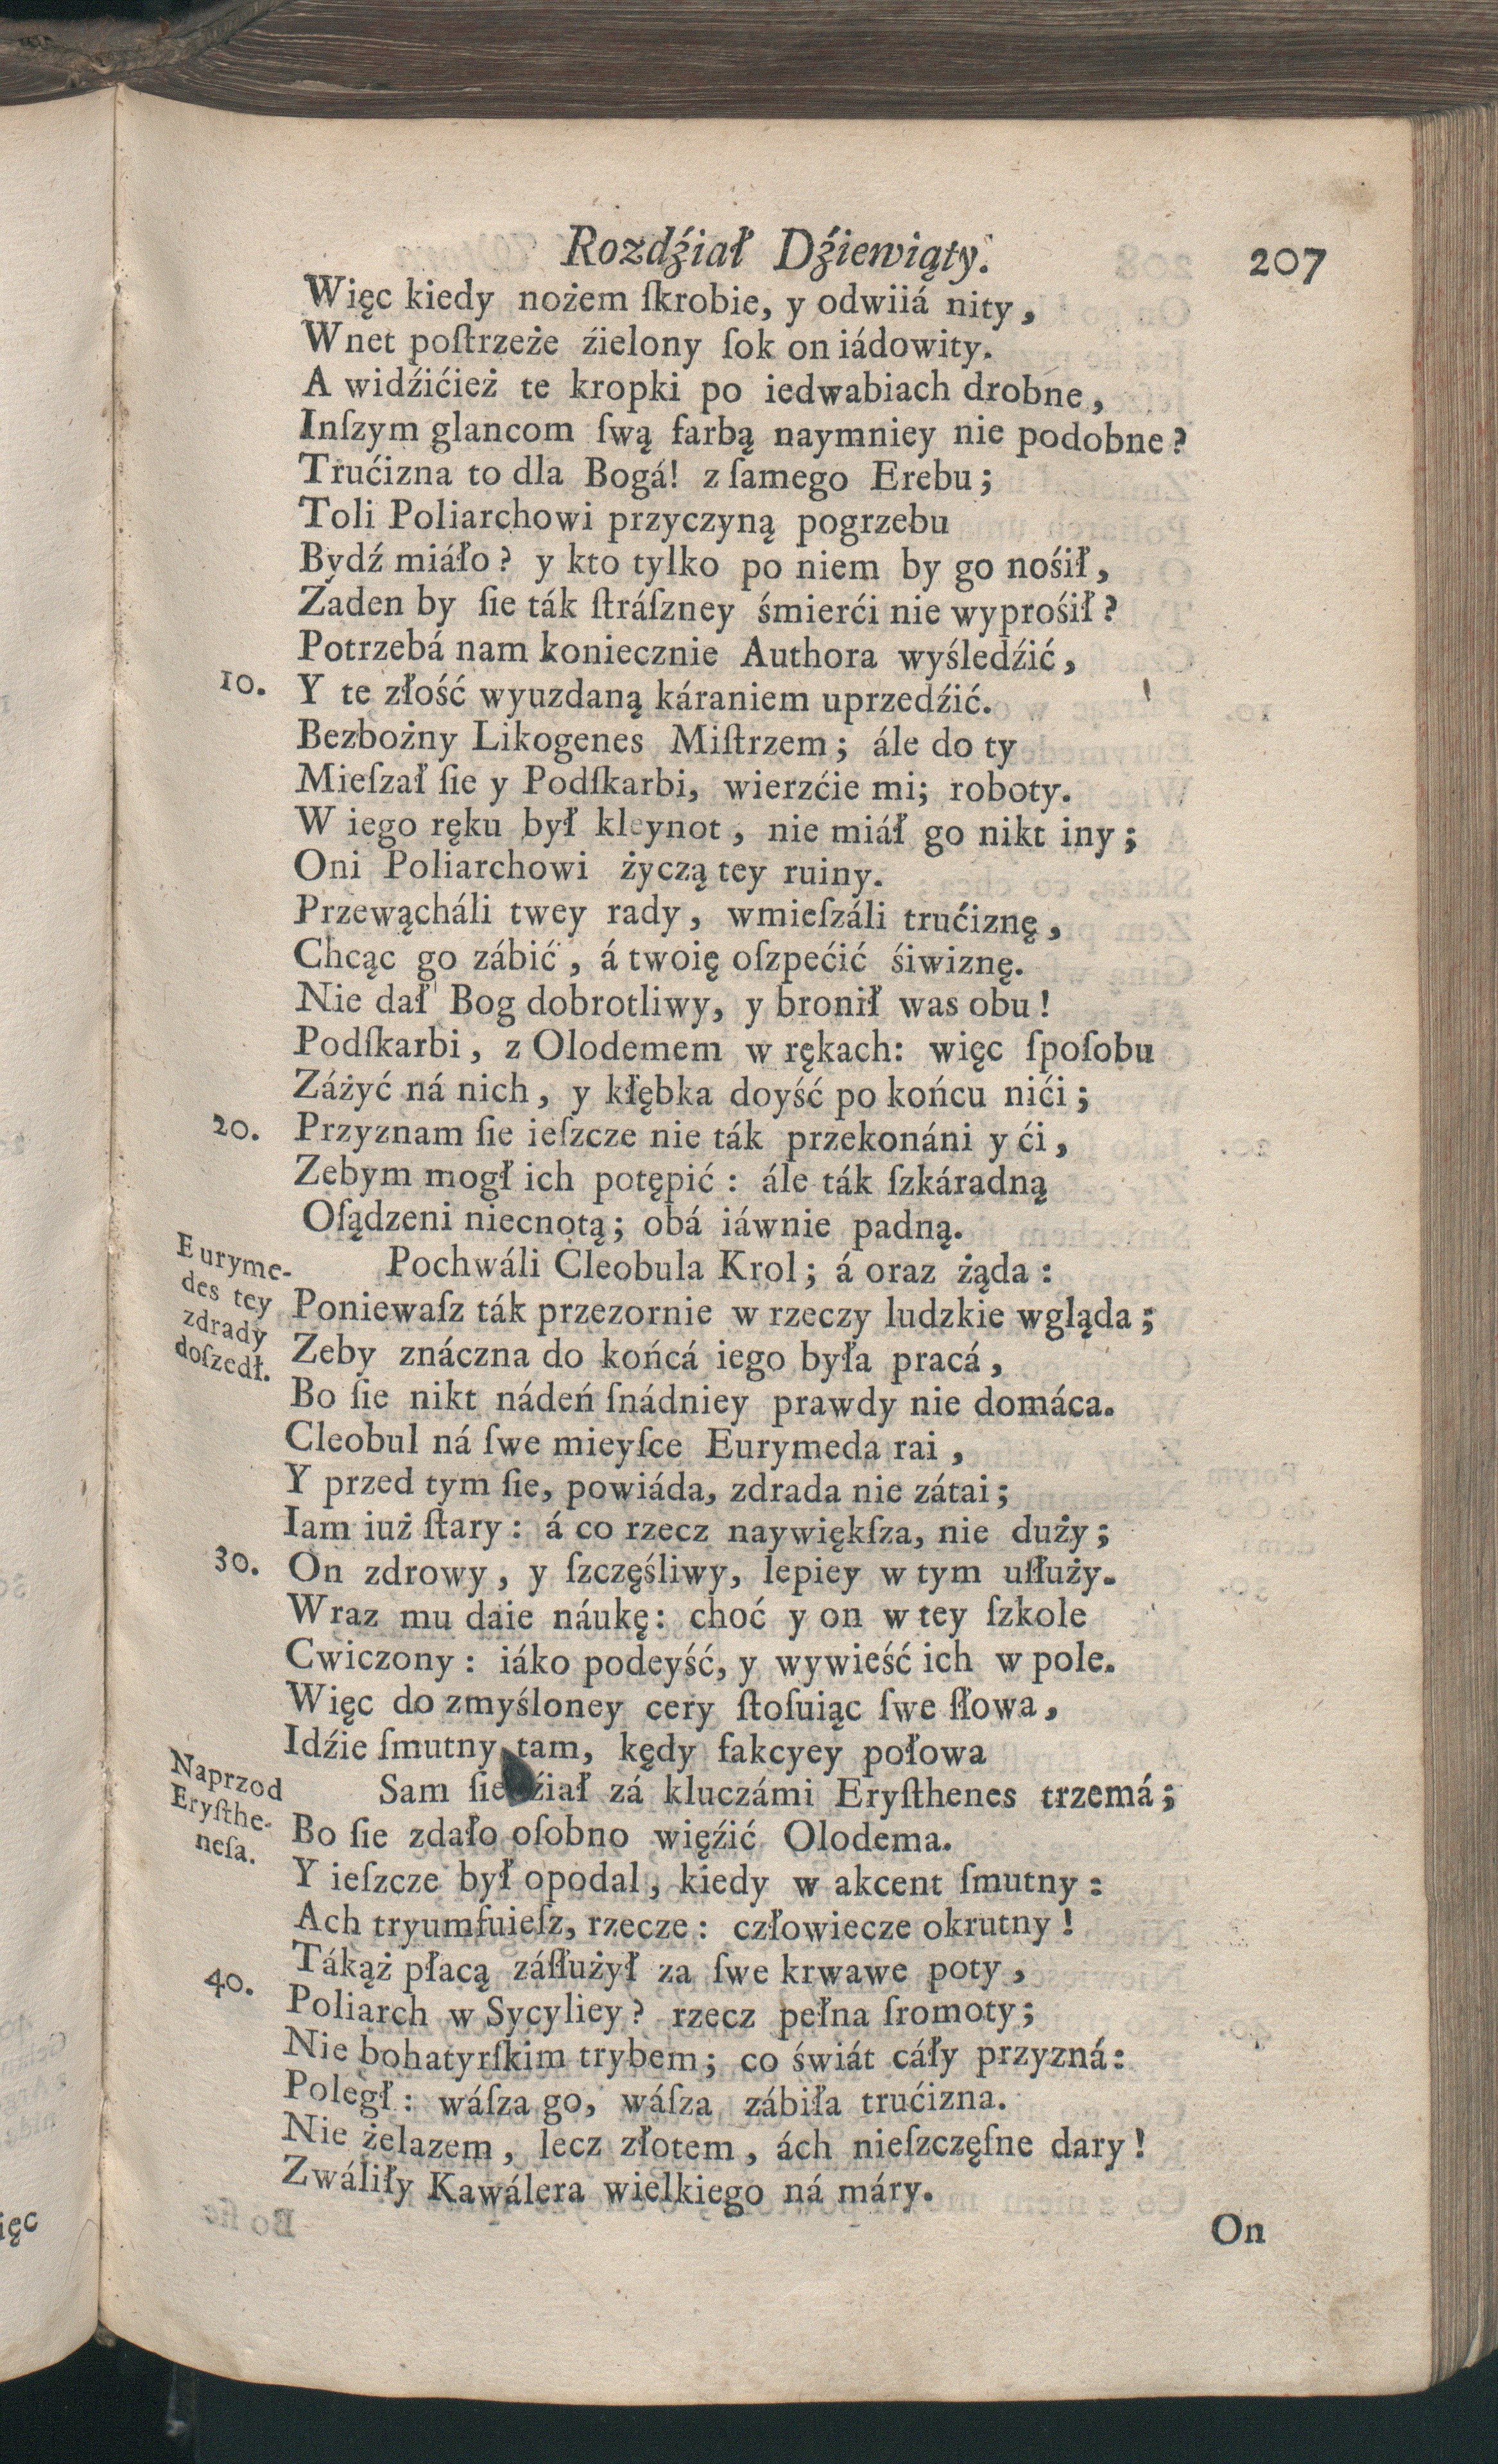 Rozdźiał Dźiewiąty. 207
Więc kiedy nożem ſkrobie, y odwiiá nity,
Wnet poſtrzeże źielony ſok on iádowity.
A widźićież te kropki po iedwabiach drobne,
Inſzym glancom ſwą farbą naymniey nie podobne?
Trućizna to dla Bogá! z ſamego Erebu;
Toli Poliarchowi przyczyną pogrzebu
Bydź miáło? y kto tylko po niem by go nośił,
Żaden by ſie ták ſtráſzney śmierći nie wyprośił?
Potrzebá nam koniecznie Authora wyśledźić,
10. Y te złość wyuzdaną káraniem uprzedźić.
Bezbożny Likogenes Miſtrzem; ále do ty
Mieſzał ſie y Podſkarbi, wierzćie mi; roboty.
W iego ręku był kleynot, nie miáł go nikt iny;
Oni Poliarchowi życzą tey ruiny.
Przewącháli twey rady, wmieſzáli trućiznę,
Chcąc go zábić, á twoię oſzpećić śiwiznę.
Nie dał Bog dobrotliwy, y bronił was obu!
Podſkarbi, z Olodemem w rękach: więc ſpoſobu
Záżyć ná nich, y kłębka doyść po końcu nići;
20. Przyznam ſie ieſzcze nie ták przekonáni y ći,
Zebym mogł ich potępić: ále ták ſzkáradną
Oſądzeni niecnotą; obá iáwnie padną.
Euryme-
des tey
zdrady
doſzedł.
Pochwáli Cleobula Krol; á oraz żąda:
Poniewaſz ták przezornie w rzeczy ludzkie wgląda;
Zeby znáczna do końcá iego była pracá,
Bo ſie nikt nádeń ſnádniey prawdy nie domáca.
Cleobul ná ſwe mieyſce Eurymeda rai,
Y przed tym ſie, powiáda, zdrada nie zátai;
Iam iuż ſtary: á co rzecz naywiękſza, nie duży;
30. On zdrowy, y ſzczęśliwy, lepiey w tym uſłuży.
Wraz mu daie náukę: choć y on w tey ſzkole
Cwiczony: iáko podeyść, y wywieść ich w pole.
Więc do zmyśloney cery ſtoſuiąc ſwe ſłowa,
Idźie ſmutny tam, kędy fakcyey połowa
Naprzod
Eryſthe-
neſa.
Sam ſiedźiał zá kluczámi Eryſthenes trzemá;
Bo ſie zdało oſobno więźić Olodema.
Y ieſzcze był opodal, kiedy w akcent ſmutny:
Ach tryumfuieſz, rzecze: człowiecze okrutny!
Tákąż płacą záſłużył za ſwe krwawe poty,
40. Poliarch w Sycyliey? rzecz pełna ſromoty;
Nie bohatyrſkim trybem; co świát cáły przyzná:
Poległ: wáſza go, wáſza zábiła trućizna.
Nie żelazem, lecz złotem, ách nieſzczęſne dary!
Zwáliły Kawálera wielkiego ná máry.
On